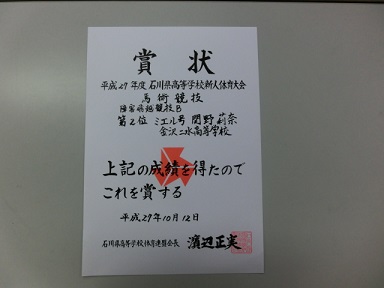 賞状
平成27年度石川県高等学校新人体育大会
馬術競技
障害飛越競技B
第2位 ミエル号 関野莉奈
金沢二水高等学校
上記の成績を得たので
これを賞する
平成27年10月12日
石川県高等学校体育連盟会長 濱辺正実